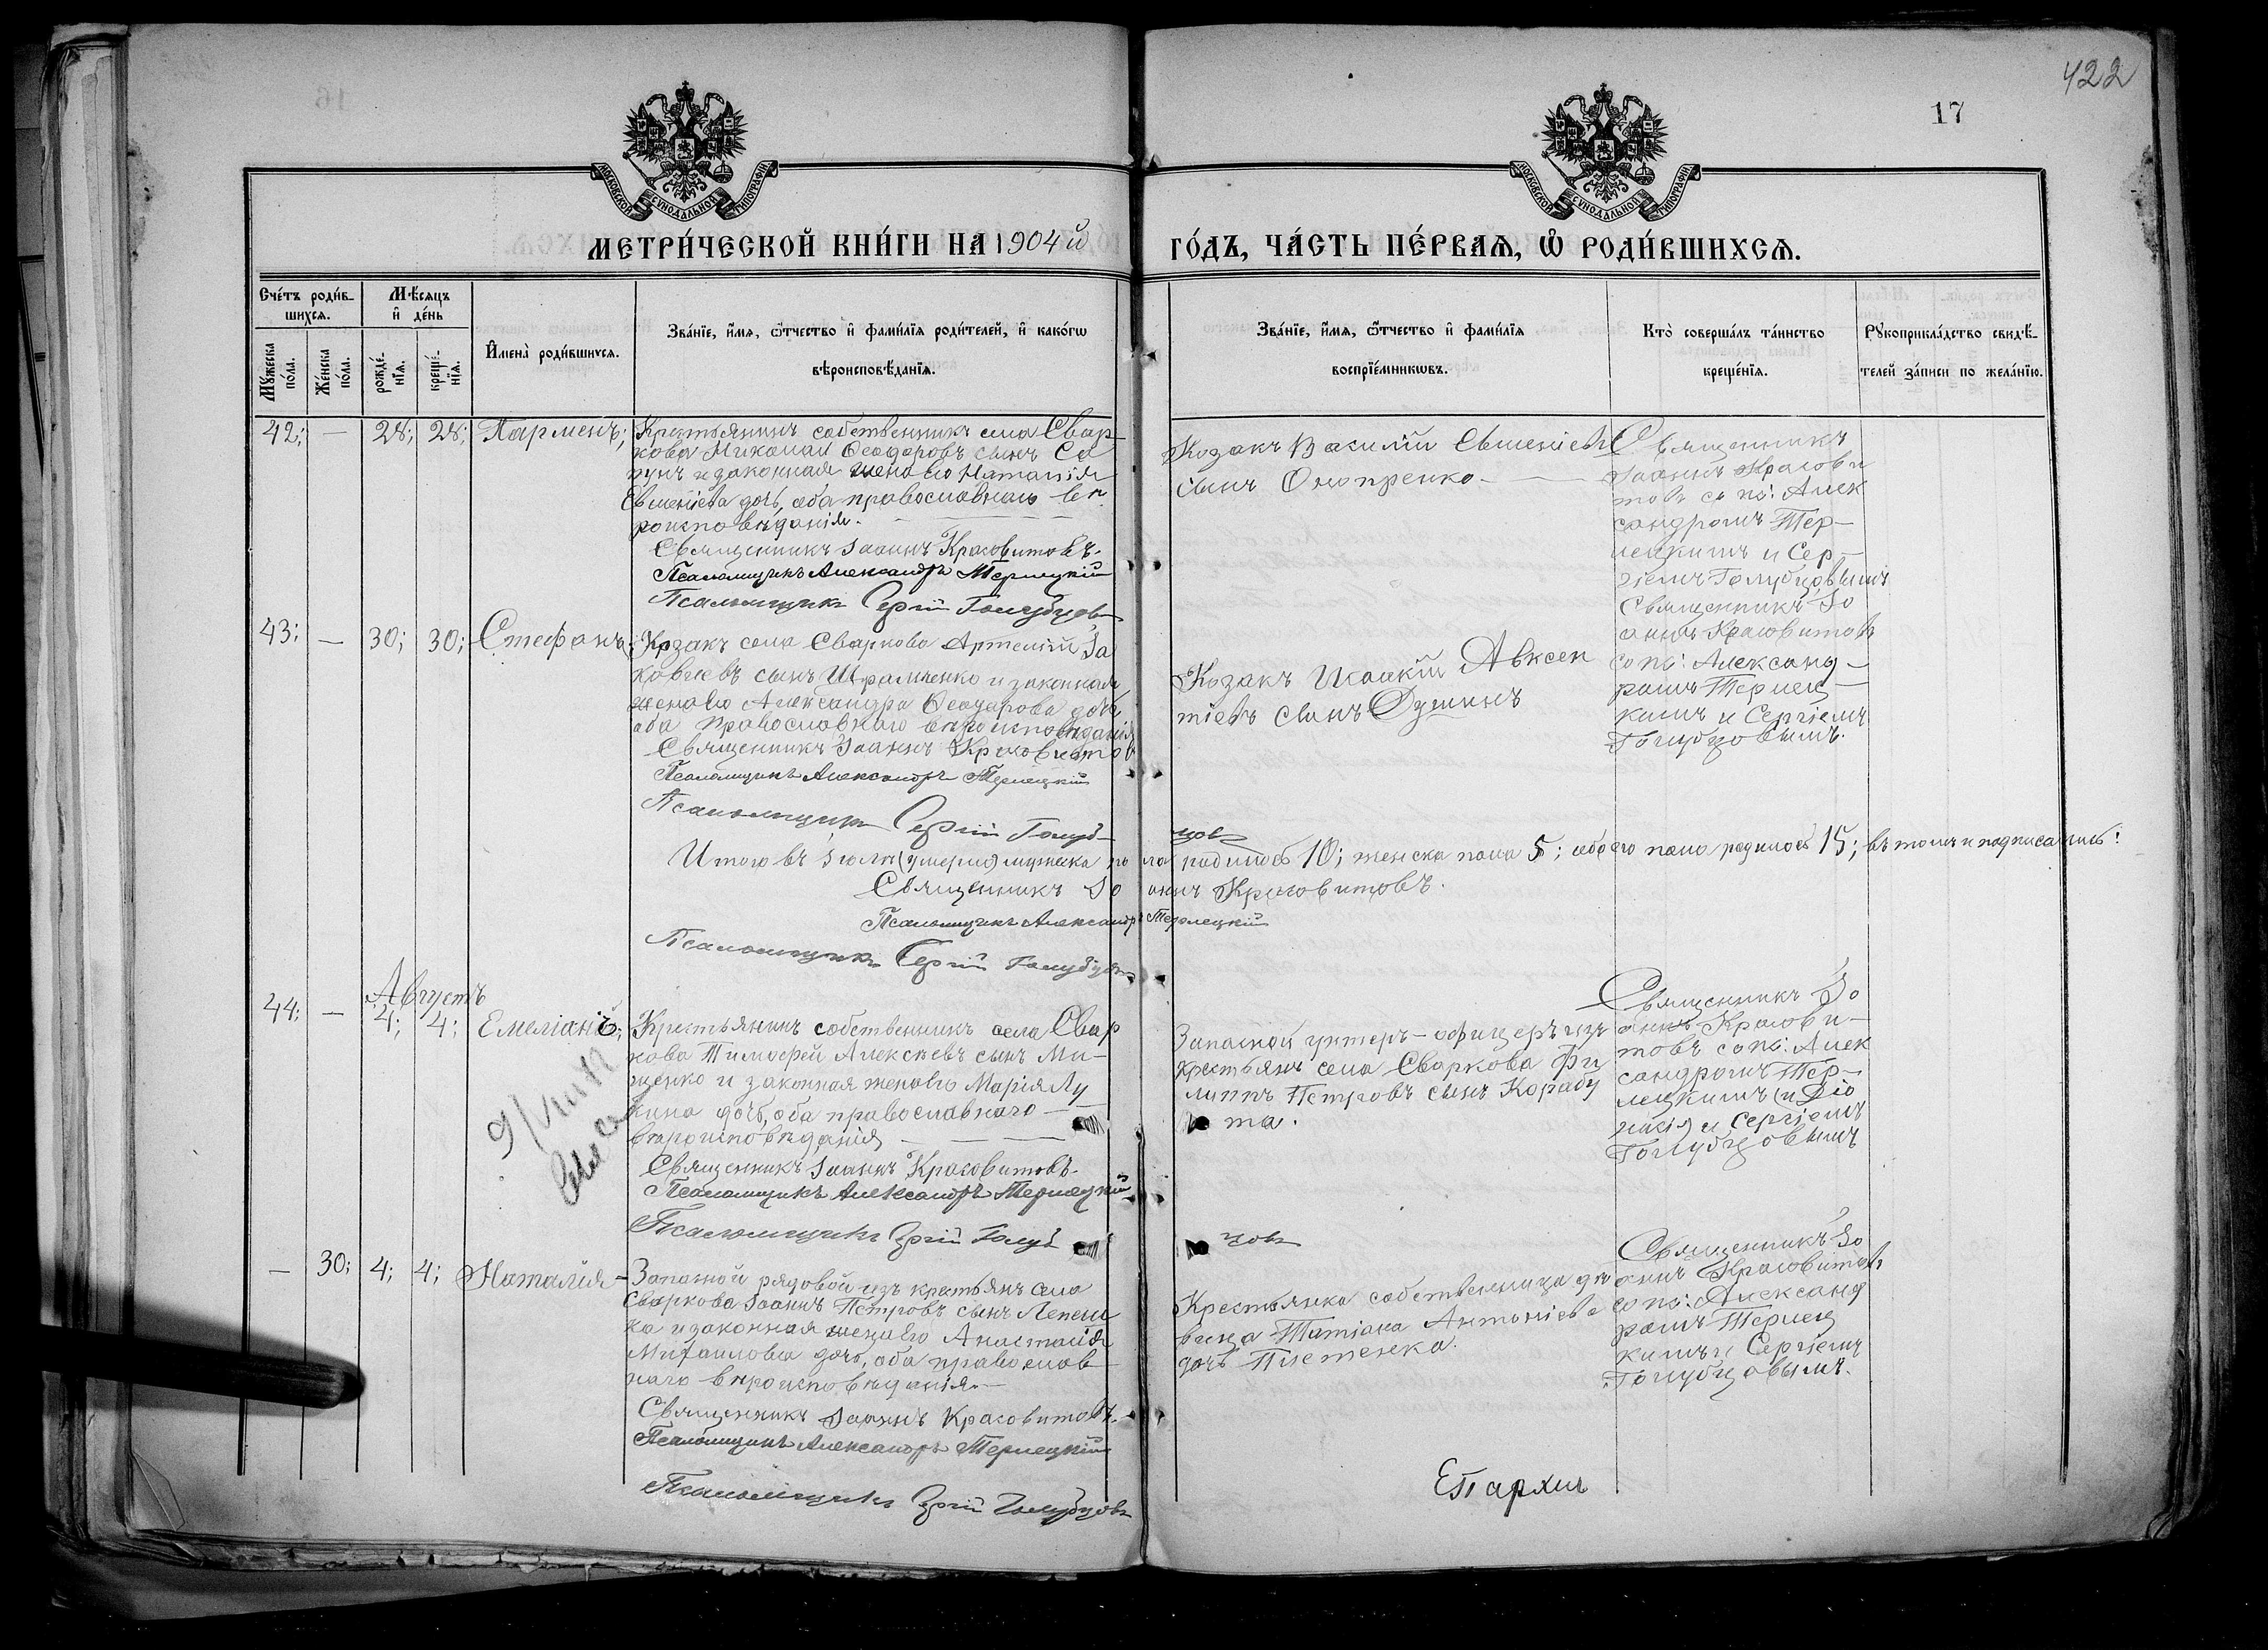 422
17
МОСКОВСКОЙ СУНОДАЛЬНОЙ ТИПОГРАФІИ
МОСКОВСКОЙ СУНОДАЛЬНОЙ ТИПОГРАФІИ
МЕТРИ́ЧЕСКОЙ КНИ́ГИ НА 1904й
ГО́ДЪ, ЧА́СТЬ ПЕ́РВАѦ, Ѡ РОДИ́ВШИХСѦ.
Сче́тъ роди́в-
шихсѧ.
Мѣ́сѧцъ
и҆ де́нь
Мꙋ́жеска
по́ла.
Же́нска
по́ла.
рожде́-
нїѧ.
креще́-
нїѧ.
И҆мена̀ роди́вшихсѧ.
Зва́нїе, и҆́мѧ, ѻ҆́тчество и҆ фами́лїѧ роди́телей, и҆ како́гѡ
вѣроисповѣ́данїѧ.
Зва́нїе, и҆́мѧ, ѻ҆́тчество и҆ фами́лїѧ
воспрїе́мникѡвъ.
Кто̀ соверша́лъ та́инство
креще́нїѧ.
Рꙋкоприкла́дство свидѣ́-
телей за́писи по жела́нїю.
42; — 28; 28; Парменъ;
Крестьянинъ собственникъ села Свар-
кова Николай Ѳеодоровъ сынъ Са
пунъ и законная жена его Наталія
Евменіева дочь, оба православнаго вѣ
роисповѣданія.
Священникъ Іоаннъ Красовитовъ.
Псаломщикъ Александръ Терлецкій
Псаломщикъ Сергій Голубцовъ
Козакъ Василій Евменіевъ
сынъ Онопренко.
Священникъ
Іоаннъ Красови
товъ съ пс: Алек
сандромъ Тер-
лецкимъ и Сер-
гіемъ Голубцовымъ
43; — 30; 30; Стефанъ;
Козакъ села Сваркова Артемій Іа
ковлевъ сынъ Шрамченко и законная
жена его Александра Ѳеодорова дочь
оба православнаго вѣроисповѣданія
Священникъ Іоаннъ Красовитовъ
Псаломщикъ Александръ Терлецкій
Псаломщикъ Сергій Голуб-
цовъ
Козакъ Исаакій Авксен
тіевъ сынъ Душинъ
Священникъ Іо
аннъ Красовитовъ
съ пс: Александ-
ромъ Терлец-
кимъ и Сергіемъ
Голубцовымъ.
Итого въ Іюлѣ мужеска пола родилось 10; женска пола 5; обоего пола родилось 15; въ томъ и подписались:
Священникъ Іоаннъ Красовитовъ.
Псаломщикъ Александръ Терлецкій
Псаломщикъ Сергій Голубцовъ
Августъ
44; — 4; 4; Емеліанъ;
Крестьянинъ собственникъ села Свар
кова Тимофей Алексѣевъ сынъ Ми-
щенко и законная жена его Марія Лу
кина дочь, оба православнаго
вѣроисповѣданія
Священникъ Іоаннъ Красовитовъ.
Псаломщикъ Александръ Терлецкій
Псаломщикъ Сергій Голуб
цовъ
Запасной унтеръ-офицеръ изъ
крестьянъ села Сваркова Фи
липпъ Петровъ сынъ Корабу
та.
Священникъ Іо
аннъ Красови-
товъ съ пс: Алек
сандромъ Тер-
лецкимъ и
и Сергіемъ
Голубцовымъ
— 30; 4; 4; Наталія
Запасной рядовой изъ крестьянъ села
Сваркова Іоаннъ Петровъ сынъ Лепеш
ка и законная жена его Анастасія
Михаилова дочь, оба православ
наго вѣроисповѣданія.
Священникъ Іоаннъ Красовитовъ.
Псаломщикъ Александръ Терлецкій
Псаломщикъ Сергій Голубцовъ
Крестьянка собственница дѣ
вица Татіана Антоніева
дочь Плетенка.
Священникъ Іо
аннъ Красовитовъ
съ пс: Александ
ромъ Терлец
кимъ и Сергіемъ
Голубцовымъ.
Епархіи